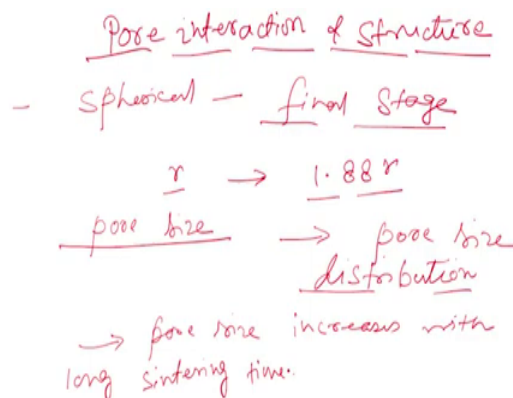 Pore interaction & structure
- Spherical - final stage
r → 1.88 r
pore size → pore size
distribution
→ pore size increases with
long sintering time.